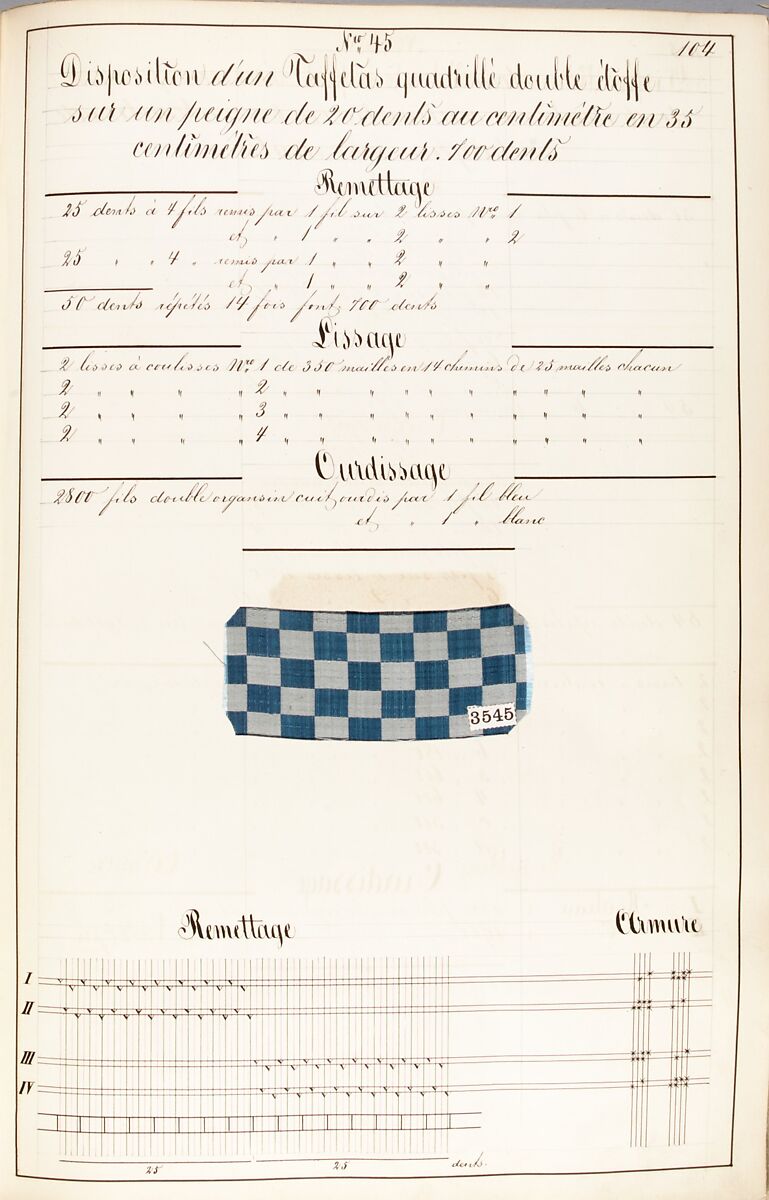 Nro 45
104
Disposition d'un Taffetas quadrillé double étoffe
sur un peigne de 20 dents au centimétre en 35
centimétres de largeur. 700 dents
Remettage
25 dents à 4 fils remis par 1 fil sur 2 lisses Nro 1
et " 1 " " 2 " " 2
25 " " 4 " remis par 1 " " 2 " "
et " 1 " " 2 " "
50 dents répétés 14 fois font 700 dents
Lissage
2 lisses à coulisses Nro 1 de 350 mailles en 14 chemins de 25 mailles chacun
2 " " " " 2 " " " " " " " " " "
2 " " " " 3 " " " " " " " " " "
2 " " " " 4 " " " " " " " " " "
Ourdissage
2800 fils double organsin cuit ourdis par 1 fil bleu
et " 1 " blanc
3545
Remettage
Armure
I
II
III
IV
25
25
dents.